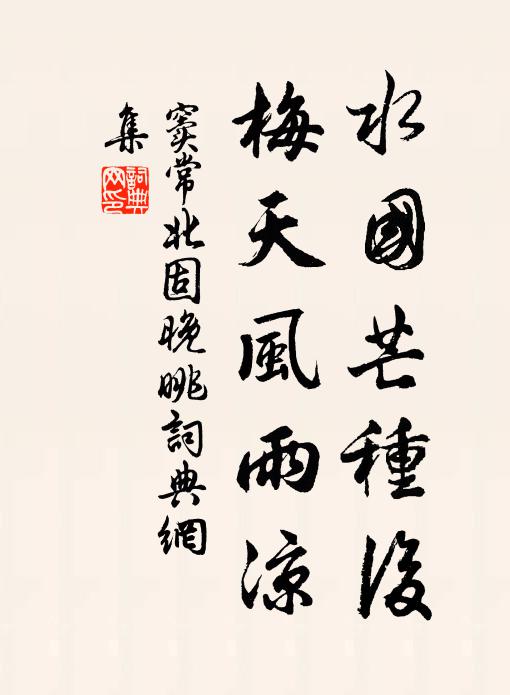 水國芒種後
梅天風雨涼
竇常北固晚眺詞典網
集
詞典
网印